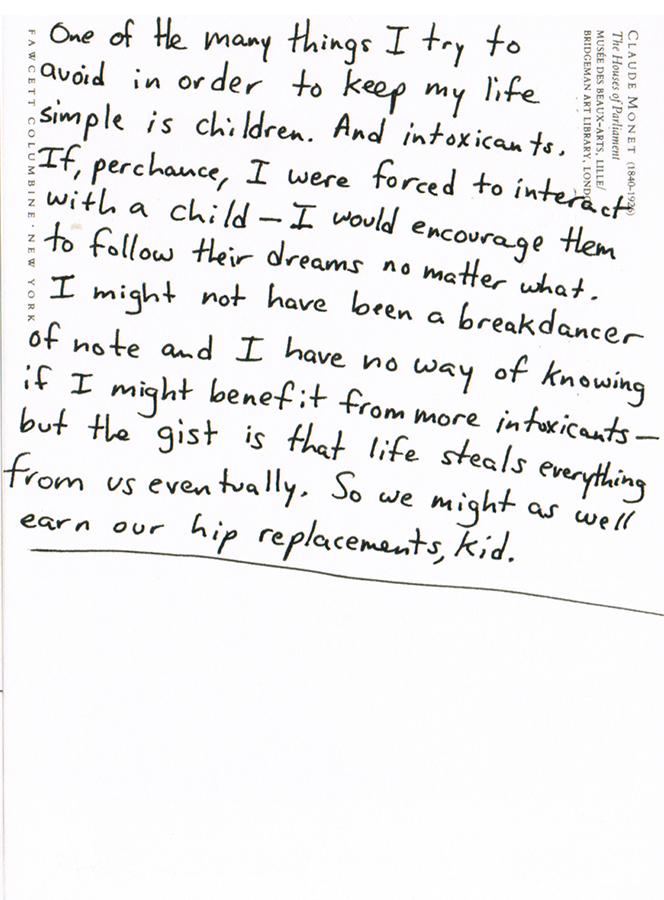 One of the many things I try to
avoid in order to keep my life
simple is children. And intoxicants.
If, perchance, I were forced to interact
with a child – I would encourage them
to follow their dreams no matter what.
I might not have been a breakdancer
of note and I have no way of knowing
if I might benefit from more intoxicants –
but the gist is that life steals everything
from us eventually. So we might as well
earn our hip replacements, kid.
FAWCETT COLUMBINE · NEW YORK
CLAUDE MONET (1840–1926)
The Houses of Parliament
MUSÉE DES BEAUX-ARTS, LILLE/
BRIDGEMAN ART LIBRARY,